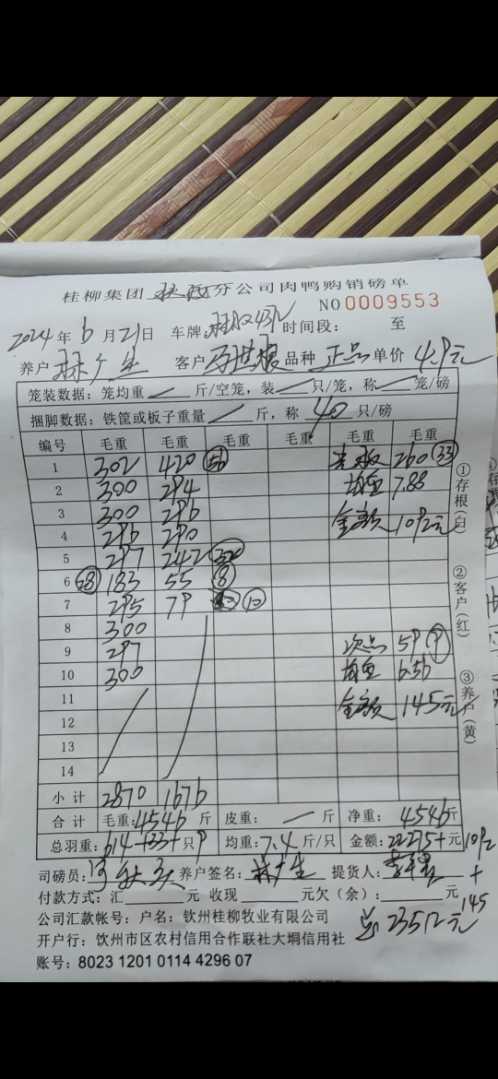 桂柳集团 分公司肉鸭购销磅单
NO 0009553
2024年6月21日 车牌: 时间段: 至
养户 林广生 客户 品种 正品 单价 4.9元
笼装数据: 笼均重 斤/空笼, 装 只/笼, 称 笼/磅
捆脚数据: 铁筐或板子重量 斤, 称 40 只/磅
编号 毛重 毛重 毛重 毛重 毛重 毛重
1 302 420 260 33
2 300 294 均重 7.88
3 300 296 金额 1092元
4 296 290
5 297 242
6 58 183 55 8
7 295 79 10
8 300
9 297 次品 59 9
10 300 均重 6.56
11 金额 145元
12
13
14
小计 2870 1676
合计 毛重: 4546 斤 皮重: 斤 净重: 4546斤
总羽重: 614+33+9 只 均重: 7.4 斤/只 金额: 22275+元 1092
司磅员: 养户签名: 林广生 提货人: +
付款方式: 汇 元 收现 元欠(余): 元 145
公司汇款帐号: 户名: 钦州桂柳牧业有限公司
开户行: 钦州市区农村信用合作联社大垌信用社 总 23512元
账号: 8023 1201 0114 4296 07
①存根(白)
②客户(红)
③养户(黄)